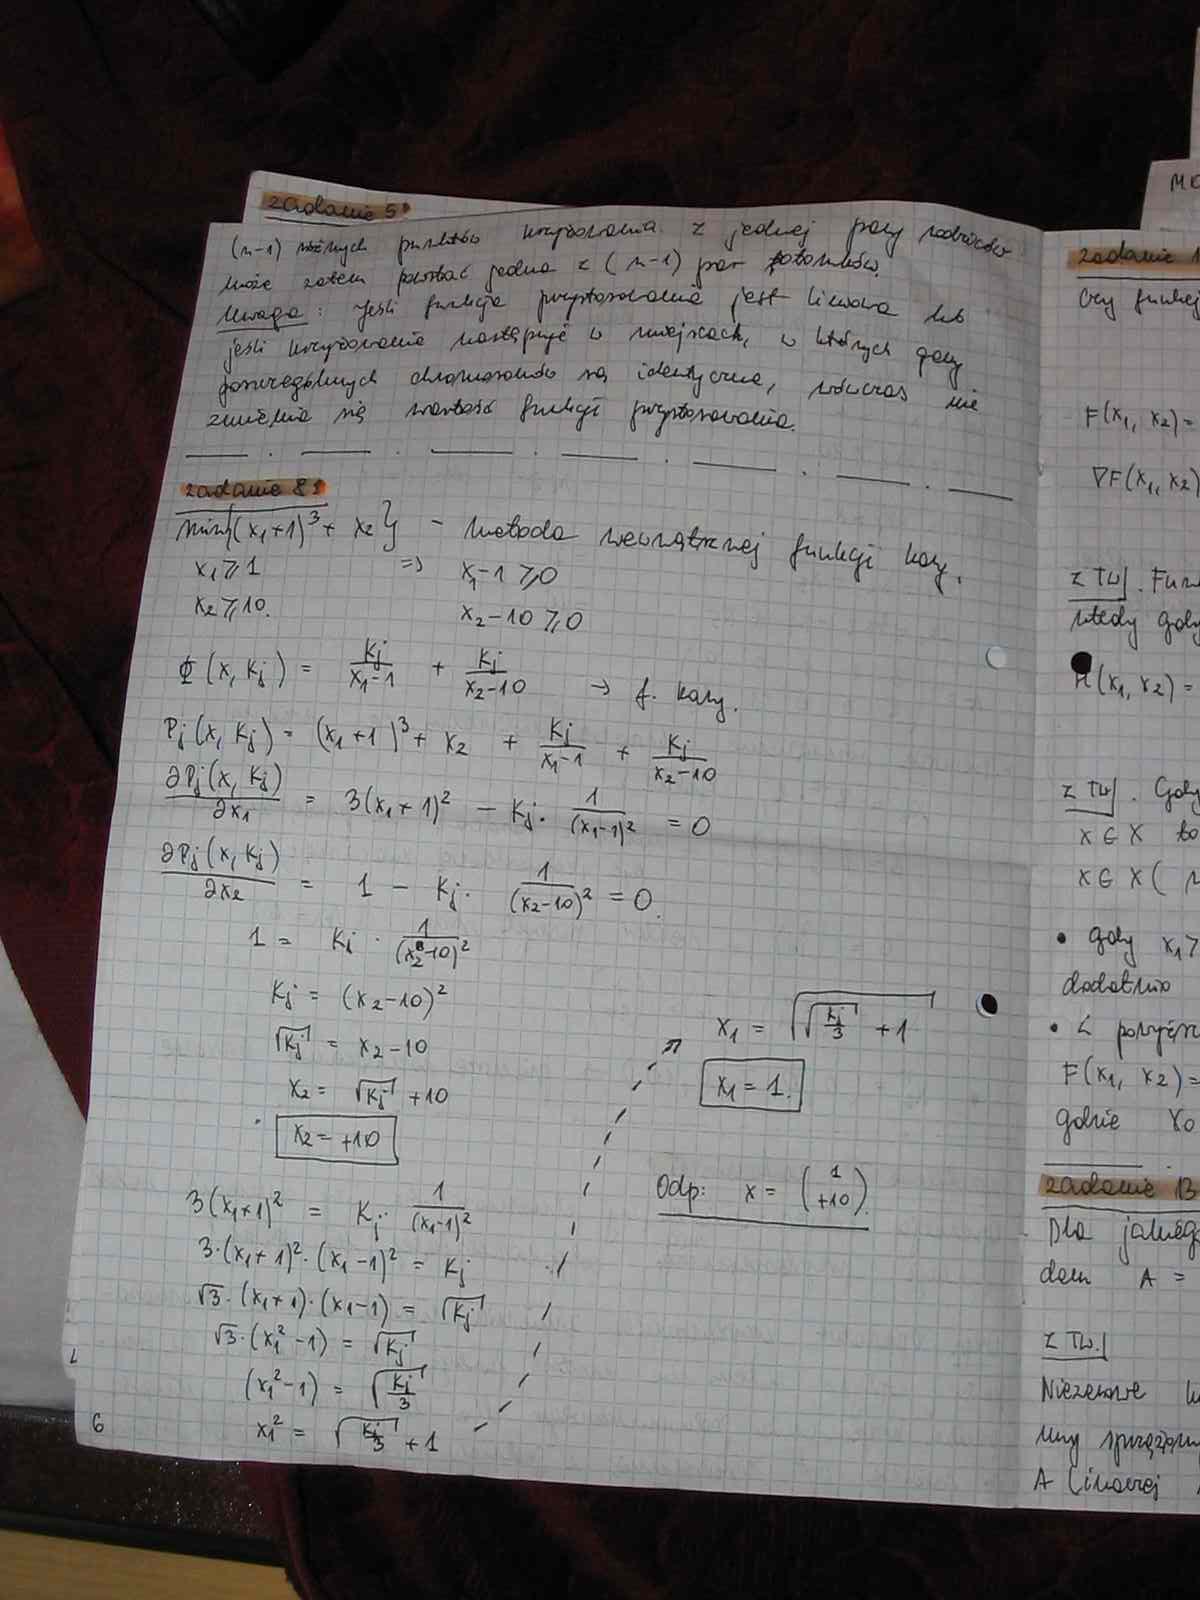 zadanie 5
(n-1) różnych punktów krzyżowania. z jednej pary rodziców
może zatem powstać jedna z (n-1) par potomków.
Uwaga: jeśli funkcja przystosowania jest liniowa lub
jeśli krzyżowanie następuje w miejscach, w których geny
poszczególnych chromosomów są identyczne, wówczas nie
zmienia się wartość funkcji przystosowania.
zadanie 8
min{(x₁+1)³ + x₂} - metoda wewnętrznej funkcji kary.
x₁ ⩾ 1 => x₁-1 ⩾ 0
x₂ ⩾ 10. x₂-10 ⩾ 0
Φ(x, Kj) = Kj/(x₁-1) + Kj/(x₂-10) → f. kary.
Pj(x, Kj) = (x₁+1)³ + x₂ + Kj/(x₁-1) + Kj/(x₂-10)
∂Pj(x, Kj)/∂x₁ = 3(x₁+1)² - Kj · 1/(x₁-1)² = 0
∂Pj(x, Kj)/∂x₂ = 1 - Kj · 1/(x₂-10)² = 0.
1 = Kj · 1/(x₂-10)²
Kj = (x₂-10)²
√Kj = x₂-10
x₂ = √Kj + 10
x₂ = +10
3(x₁+1)² = Kj · 1/(x₁-1)²
3·(x₁+1)²·(x₁-1)² = Kj
√3·(x₁+1)·(x₁-1) = √Kj
√3·(x₁²-1) = √Kj
(x₁²-1) = √(Kj/3)
x₁² = √(Kj/3) + 1
x₁ = √(√(Kj/3) + 1)
x₁ = 1.
Odp: x = (1 +10).
6
zadanie 1
Czy funkcj
F(x₁, x₂) =
∇F(x₁, x₂)
z TW. Fun
wtedy gdy
H(x₁, x₂) =
z TW. Gdy
x ∈ X to
x ∈ X (
• gdy x₁ >
dodatnio
• z powyższ
F(x₁, x₂) =
gdzie x₀
zadanie 13
Dla jakiego
dem A =
z TW.
A (inaczej